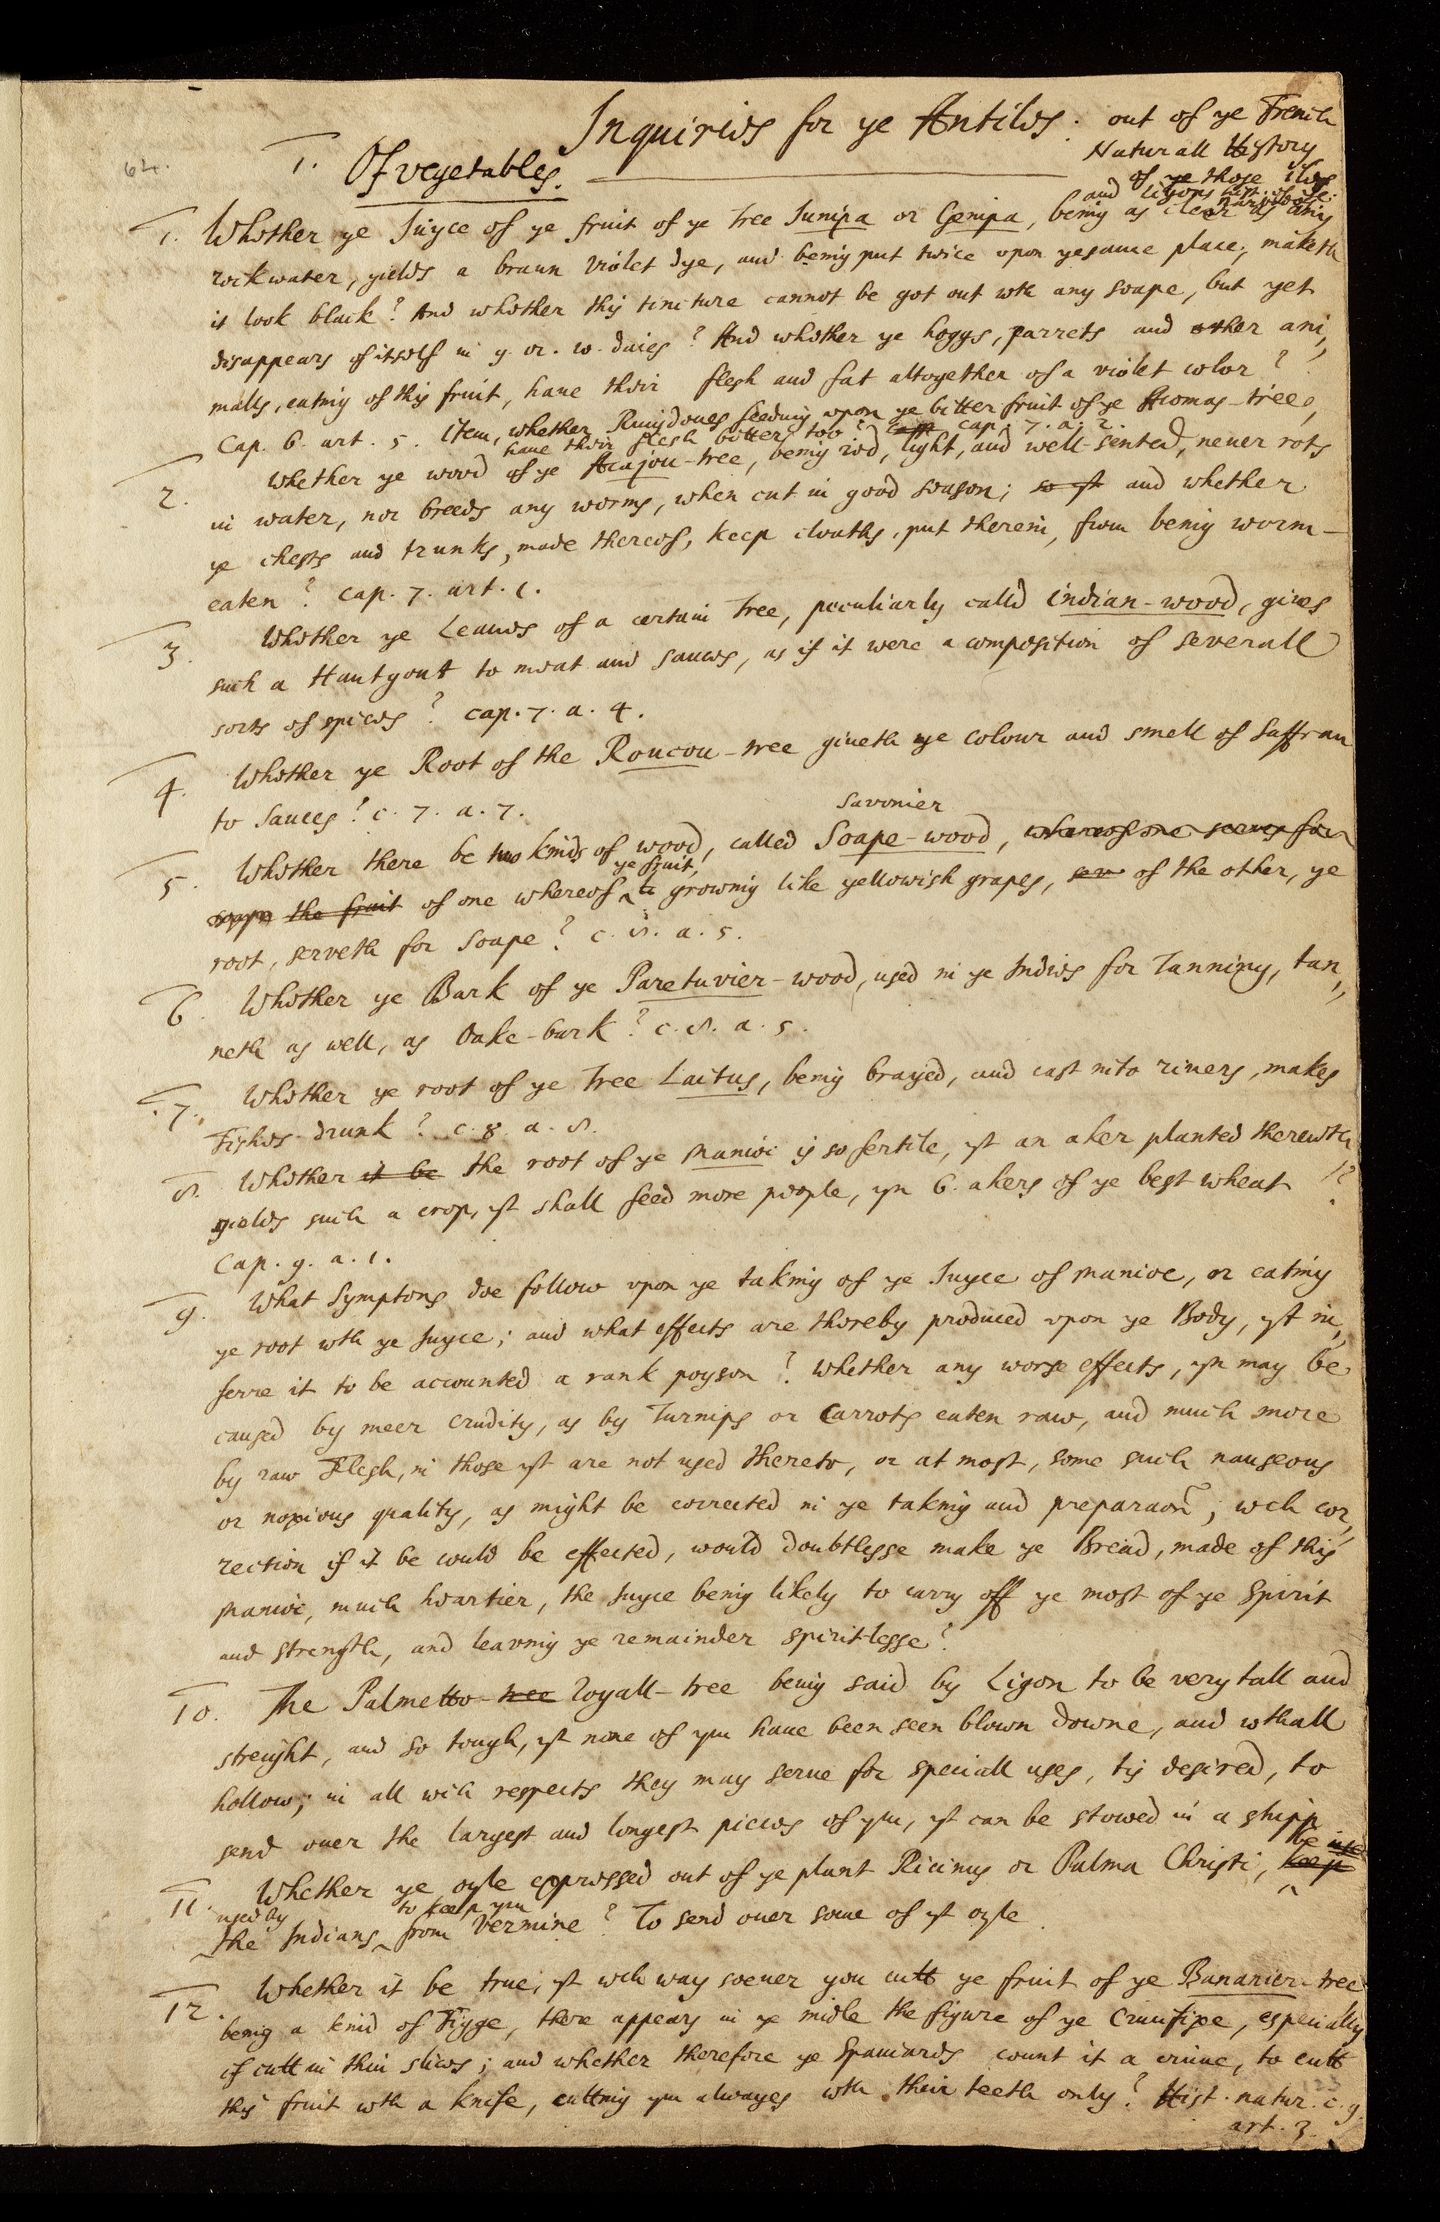 Inquiries for ye Antiles. out of ye French
Naturall History
of ye those iles
and Ligons hist. of
64.
1. Of vegetables.
1. Whether ye Juyce of ye fruit of ye tree Junipa or Genipa, being as clear as any
rockwater, yields a braun violet dye, and being put twice upon ye same place, maketh
it look black? And whether this tincture cannot be got out wth any soape, but yet
disappears of itself in 9. or. 10. daies? And whether ye hoggs, parrets and other ani,,
malls, eating of this fruit, haue their flesh and fat altogether of a violet color?
Cap. 6. art. 5. Item, whether Ringdoues feeding upon ye bitter fruit of ye Acomas-tree,
haue their flesh bitter too? cap. 7. a. 2.
2. Whether ye wood of ye Acajou-tree, being red, light, and well-sented, neuer rots
in water, nor breeds any worms, when cut in good season; so yt and whether
ye chests and trunks, made thereof, keep cloaths, put therein, from being worm-
eaten? cap. 7. art. 1.
3. Whether ye Leaues of a certain tree, peculiarly calld indian-wood, gives
such a Hautgout to meat and sauces, as if it were a composition of severall
sorts of spices? cap. 7. a. 4.
4. Whether ye Root of the Roucou-tree giueth ye colour and smell of Saffran
to Sauces? c. 7. a. 7.
savonier
5. Whether there be two kinds of wood, called Soape-wood, whereof one serves for
soape the fruit of one whereof ye fruit, growing like yellowish grapes, of the other, ye
root, serveth for Soape? c. 8. a. 5.
6. Whether ye Bark of ye Paretuvier-wood, used in ye Indies for Tanning, tan,,
neth as well, as Oake-bark? c. 8. a. 5.
7. Whether ye root of ye tree Laitus, being brayed, and cast into riuers, makes
Fishes drunk? c. 8. a. 8.
8. Whether it be the root of ye manioc is so fertile, yt an aker planted therewth
yields such a crop, yt shall feed more people, yn 6. akers of ye best wheat?
Cap. 9. a. 1.
9. What Symptons doe follow upon ye taking of ye Juyce of manioc, or eating
ye root wth ye Juyce; and what effects are thereby produced upon ye Body, yt in,,
ferre it to be accounted a rank poyson? Whether any worse effects, yn may be
caused by meer crudity, as by Turnips or Carrots eaten raw, and much more
by raw Flesh, in those yt are not used thereto, or at most, some such nauseous
or noxious quality, as might be corrected in ye taking and preparaon; wch cor,,
rection if it be could be effected, would doubtlesse make ye Bread, made of this
Manioc, much heartier, the Juyce being likely to carry off ye most of ye Spirit
and strength, and leaving ye remainder spirit-lesse?
10. The Palmetto-tree royall-tree being said by Ligon to be very tall and
streight, and so tough, yt none of ym haue been seen blown downe, and wthall
hollow; in all wch respects they may serue for speciall uses, tis desired, to
send ouer the largest and longest pieces of ym, yt can be stowed in a shipp
11. Whether ye oyle expressed out of ye plant Ricinus or Palma Christi, keep
used by to keep ym
the Indians from vermine? To send ouer some of yt oyle
12. Whether it be true, yt wch way soeuer you cutt ye fruit of ye Bananier-tree
being a kind of Figge, there appears in ye midle the figure of ye Crucifixe, especially
if cutt in thin slices; and whether therefore ye Spaniards count it a crime, to cutt
this fruit wth a knife, cutting ym alwayes wth their teeth only? Hist. natur. c. 9.
art. 3.